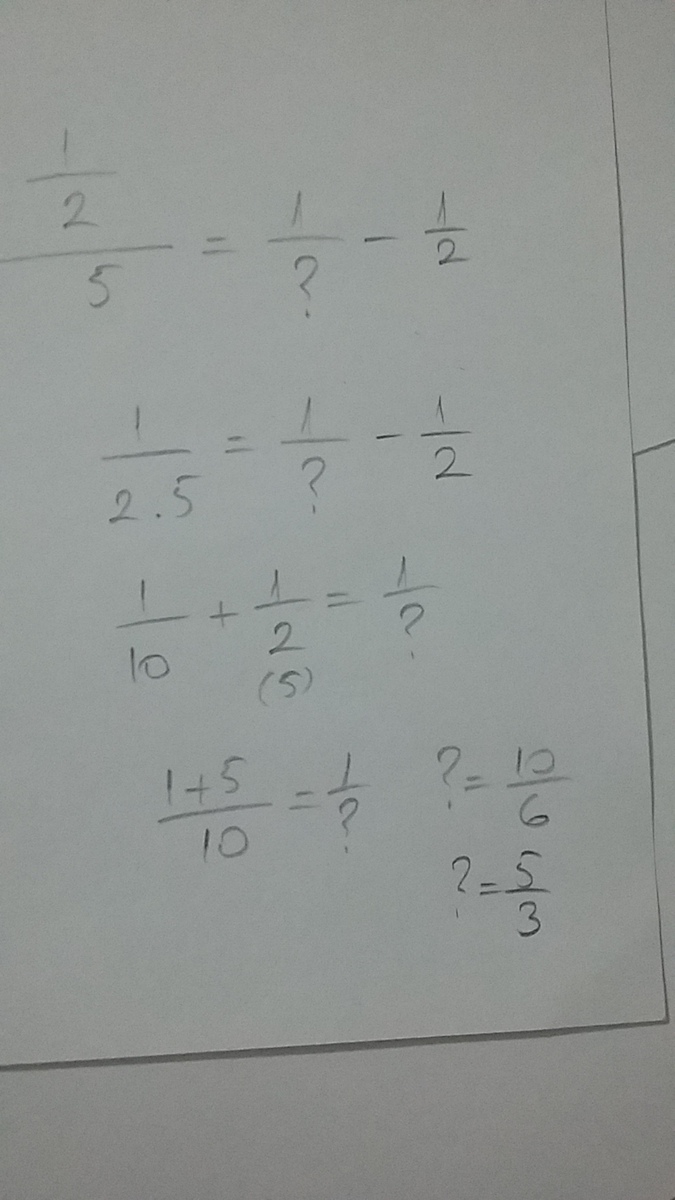 (1/2)/5 = 1/? - 1/2
1/(2.5) = 1/? - 1/2
1/10 + 1/2 = 1/?
(5)
(1+5)/10 = 1/? ? = 10/6
? = 5/3